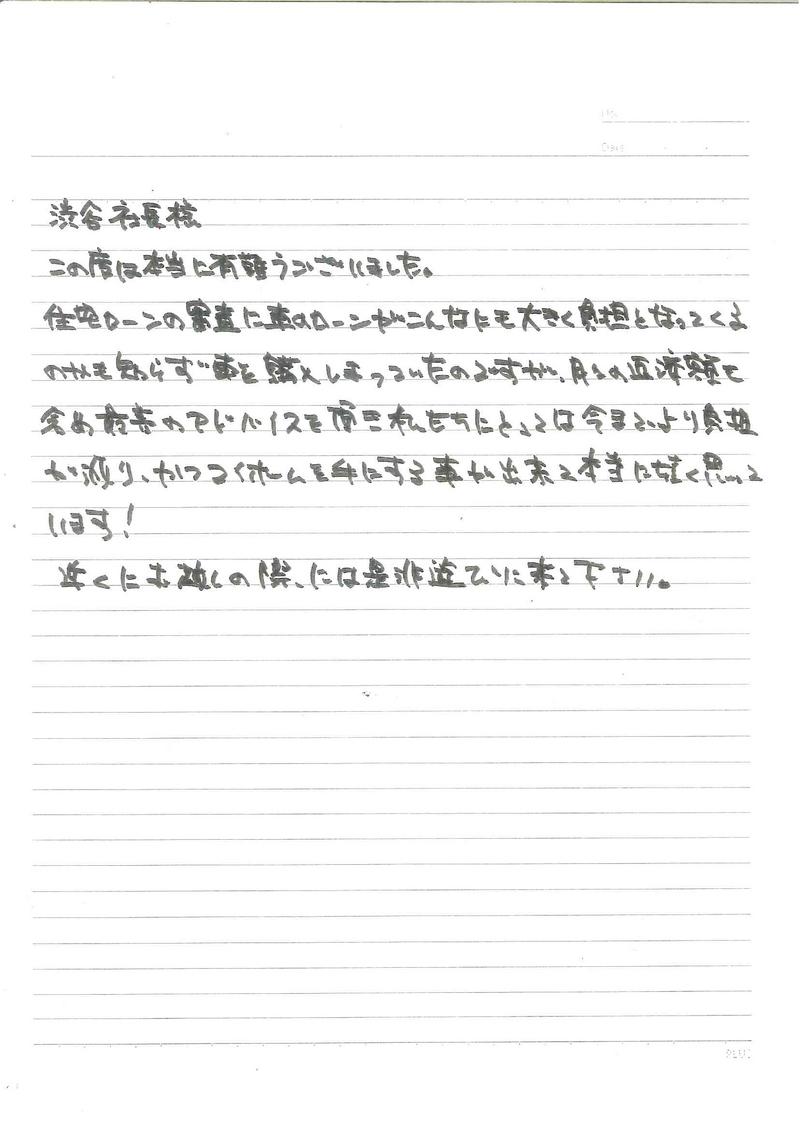 No.
Date
渋谷社長様
この度は本当に有難うございました。
住宅ローンの審査に車のローンがこんなにも大きく負担となってくる
のかも知らず車を購入しまっていたのですが、月々の返済額も
含め最善のアドバイスを頂き私たちにとっては今までより負担
が減り、かつマイホームを手にする事が出来て本当に嬉く思って
います!
近くにお越しの際、には是非遊びりに来て下さい。